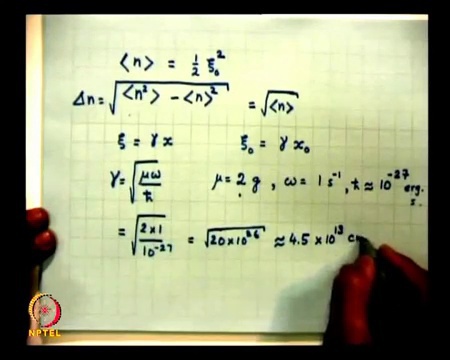 ⟨n⟩ = 1/2 ξ₀²
Δn = √(⟨n²⟩ - ⟨n⟩²) = √⟨n⟩
ξ = γ x    ξ₀ = γ x₀
γ = √(μω/ħ)    μ = 2 g, ω = 1 s⁻¹, ħ ≈ 10⁻²⁷ erg. s.
= √(2×1/10⁻²⁷) = √(20×10²⁶) ≈ 4.5 × 10¹³ c
NPTEL